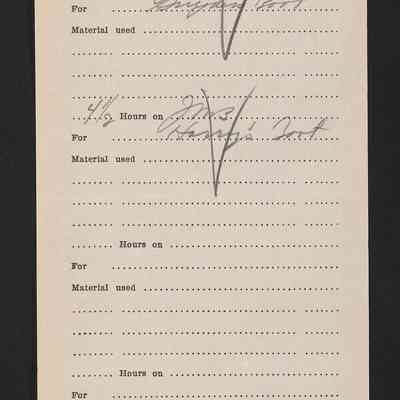 For
Material used
4 1/2 Hours on
For Harry's Foot
Material used
Hours on
For
Material used
Hours on
For